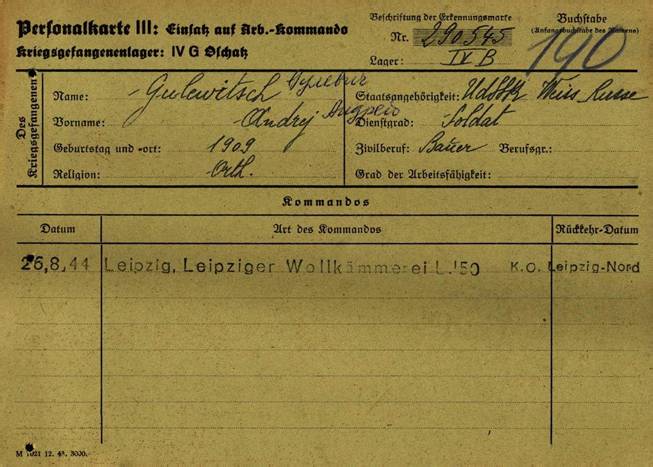 Personalkarte III: Einsatz auf Arb.-Kommando
Kriegsgefangenenlager: IV G Oschatz
Beschriftung der Erkennungsmarke
Nr. 290545
Lager: IV B
Buchstabe
(Anfangsbuchstabe des Namens)
190
Des Kriegsgefangenen
Name: Gulewitsch Гулевич
Vorname: Andrej Андрей
Geburtstag und -ort: 1909
Religion: Orth.
Staatsangehörigkeit: UdSSR Weiss Russe
Dienstgrad: Soldat
Zivilberuf: Bauer Berufsgr.:
Grad der Arbeitsfähigkeit:
Kommandos
Datum Art des Kommandos Rückkehr-Datum
26,8,44 Leipzig, Leipziger Wollkämmerei L.'50 K.O. Leipzig-Nord
M 12. 43. 3000.